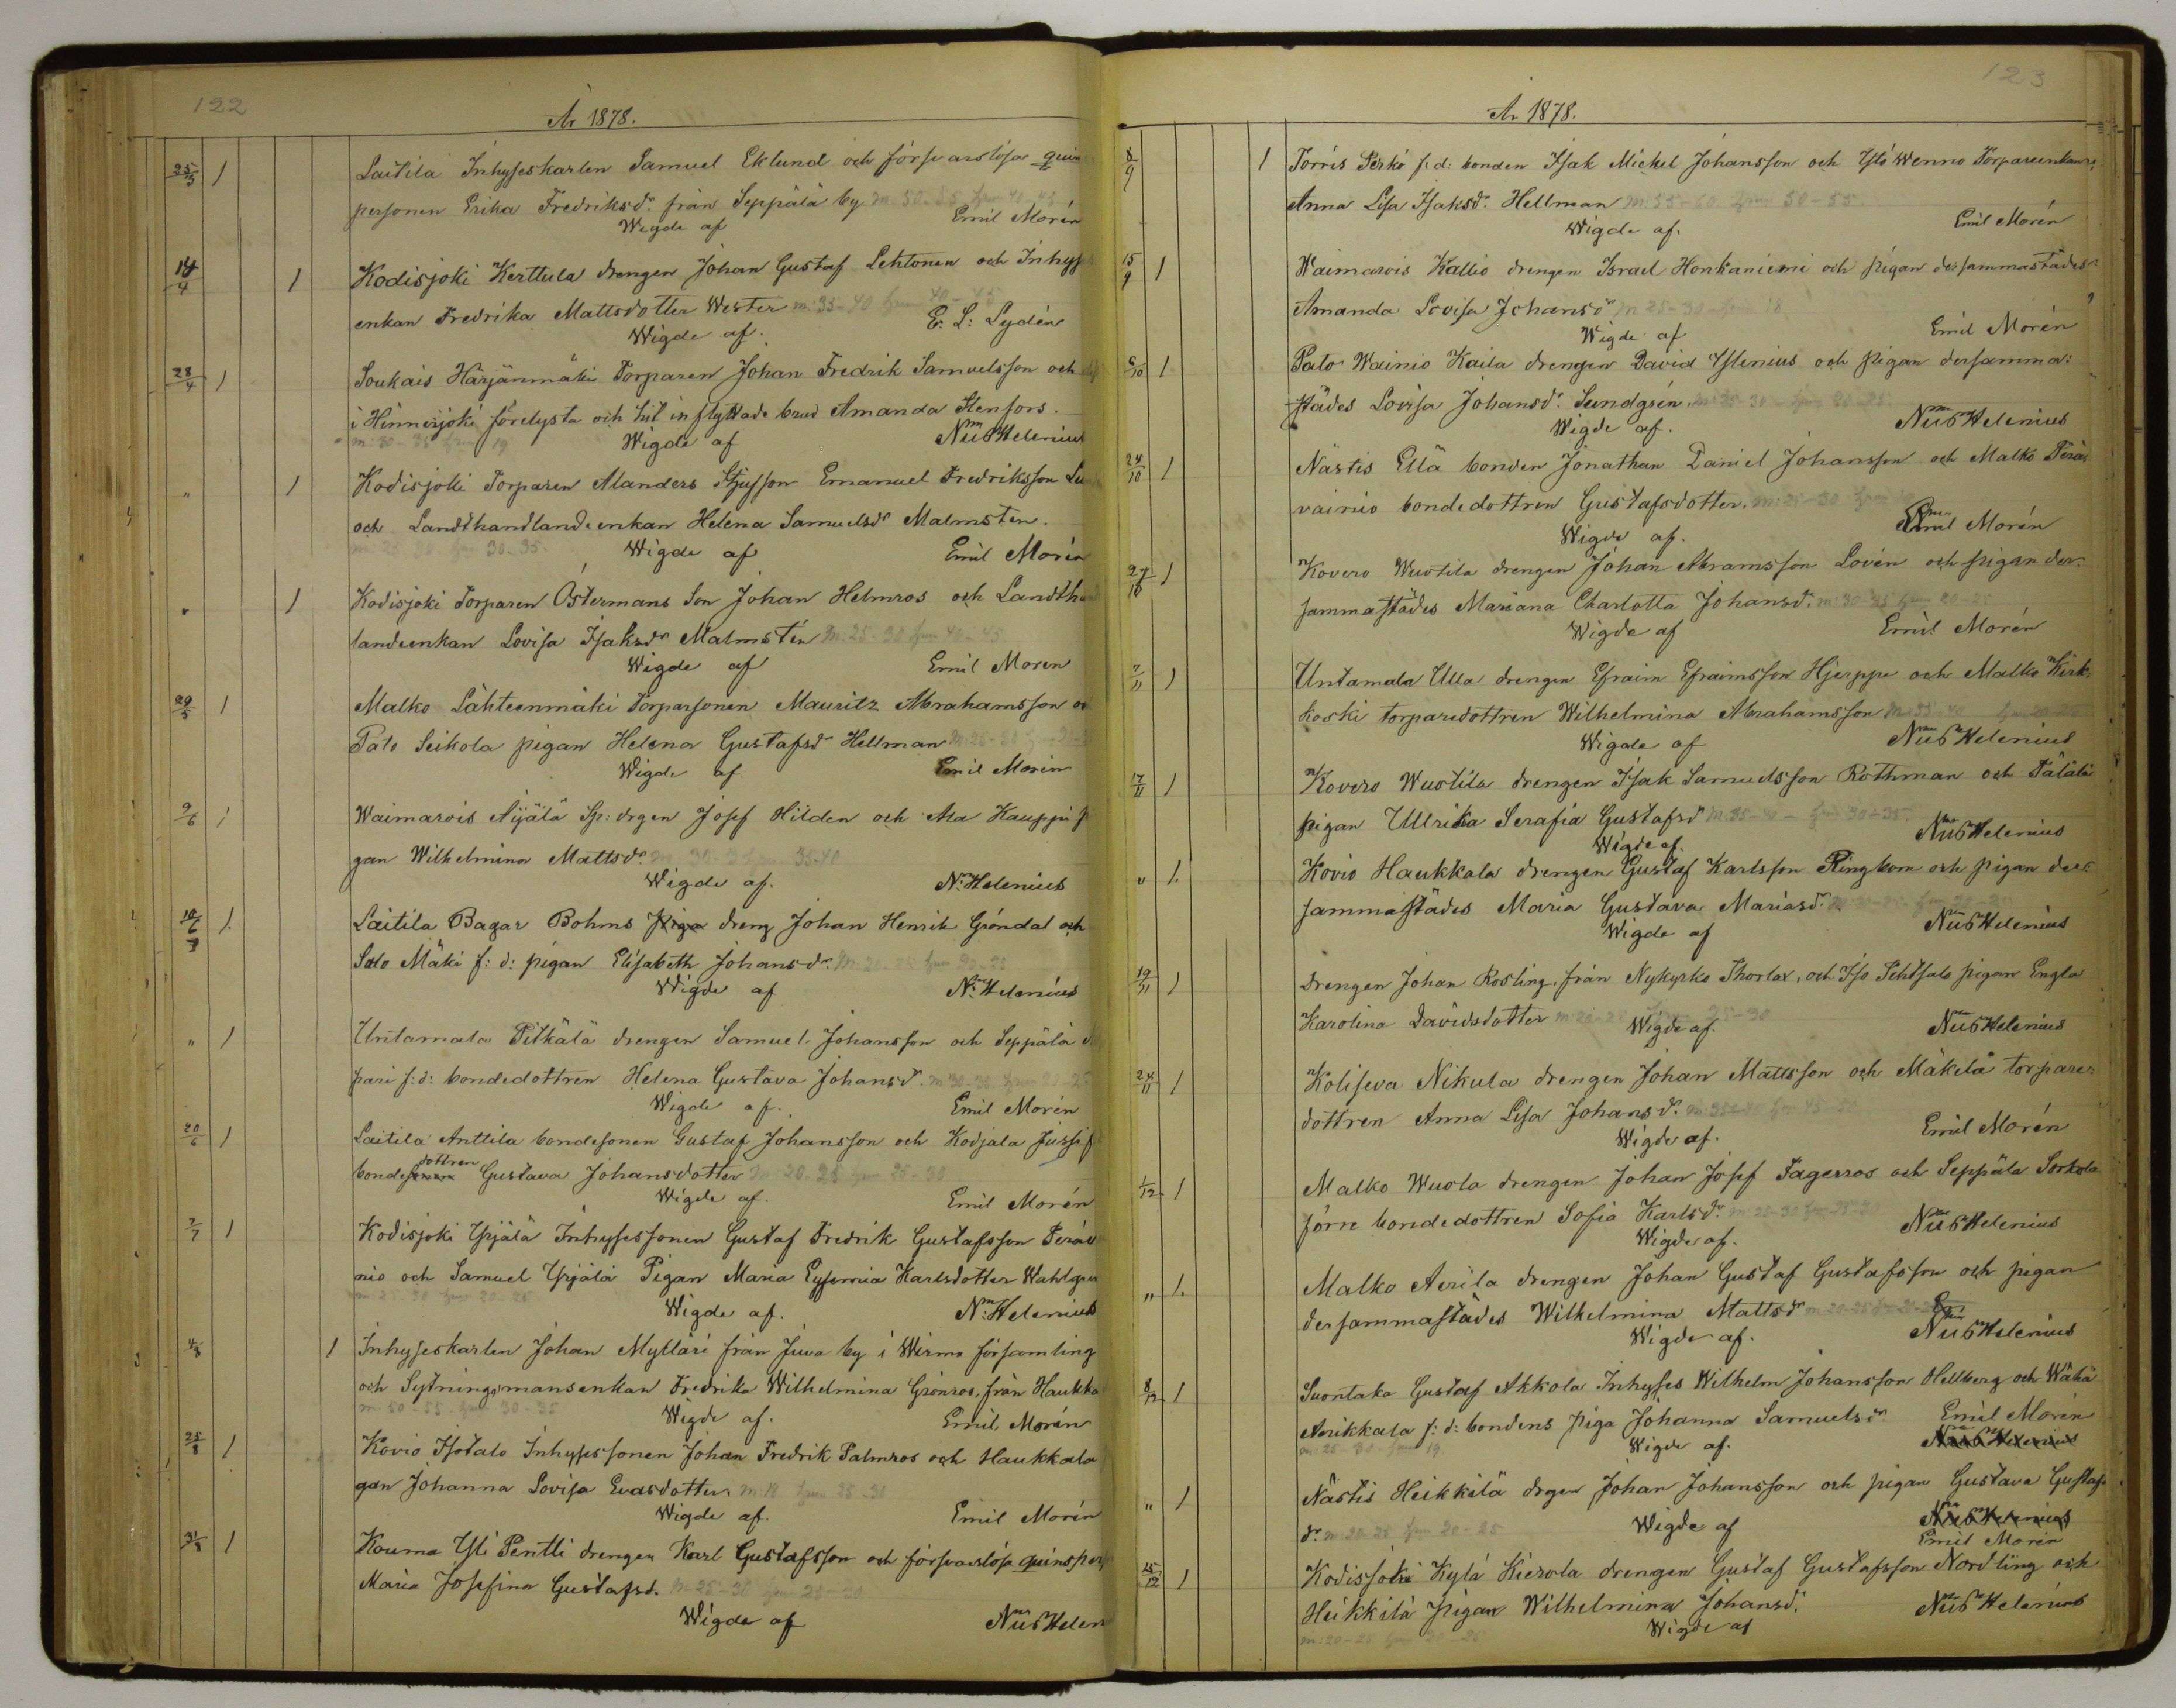 122
År 1878.
25/3 1 Laitila Inhyseskarlen Samuel Eklund och försvarslösa quins
personen Erika Fredriksdr. från Seppälä by
Wigde af Emil Morén
14/4 1 Kodisjoki Kerttula drengen Johan Gustaf Lehtonen och Inhyses
enkan Fredrika Mattsdotter Wester m: 35-40
Wigde af. E. L: Lydén
28/4 1 Soukais Härjänmäki Torparen Johan Fredrik Samuelsson och
i Hinnerjoki förelysta och hit inflyttade brud Amanda Stenfors.
Wigde af Helenius
„ 1 Kodisjoki Torparen Alanders Stjufson Emanuel Fredriksson
och Landthandlandeenkan Helena Samuelsdr Malmsten.
30-35. Wigde af Emil Morén
„ 1 Kodisjoki Torparen Östermans Son Johan Helmros och Landth
landeenkan Lovisa Isaksdr Malmstén
Wigde af Emil Moren
29/5 1 Malko Lähteenmäki Torparsonen Mauritz Abrahamsson
Pato Seikola pigan Helena Gustafsdr Hellman
Wigde af Emil Morén
9/6 1 Waimarois Äijälä Sp: drgen Josef Hilden och Ala Kauppi
gan Wilhelmina Mattsdr.
Wigde af. Helenius
1. Laitila Bagar Bohms piga dreng Johan Henrik Gröndal och
Salo Mäki f: d: pigan Elisabeth Johansdr.
Wigde af Helenius
„ 1 Untamala Pitkälä drengen Samuel Johansson och Seppälä
pari f: d: bondedottren Helena Gustava Johansdr.
Wigde af. Emil Morén
20/6 1 Laitila Anttila bondesonen Gustaf Johansson och Kodjala Jussi
dottren
bondesonen Gustava Johansdotter
Wigde af. Emil Morén
7/7 1 Kodisjoki Yrjälä Inhysessonen Gustaf Fredrik Gustafsson
nio och Samuel Yrjälä Pigan Maria Eufemia Karlsdotter Wahlgren
Wigde af. Helenius
4/8 1 Inhyseskarlen Johan Mylläri från Juva by i Wirmo församling
och Sytningsmansenkan Fredrika Wilhelmina Grönroos, från Haukka
m: 50-55. 30-35 Wigde af. Emil Morén
25/8 1 Kovio Isotalo Inhysessonen Johan Fredrik Palmros och Haukkala
gan Johanna Lovisa Evasdotter.
Wigde af. Emil Morén
31/8 1 Kouma Yli Pentti drengen Karl Gustafsson och försvarslösa quinspers
Maria Josefina Gustafsd.
Wigde af Helen
123
År 1878.
8/9 1 Torris Perko f: d: bonden Isak Mickel Johansson och Wenno Torpareenkan
Anna Lisa Isaksdr. Hellman 50-55.
Wigde af. Emil Morén
15/9 1 Waimarois Kallio drengen Israel Honkaniemi och pigan dersammastädes
Amanda Lovisa Johansdr
Wigde af Emil Morén
6/10 1 Pato Wainio Kaila drengen David Ystenius och pigan dersamma:
städes Lovisa Johansdr. Sundgrén.
Wigde af. Helenius
24/10 1 Nästis Ellä bonden Jonathan Daniel Johansson och Malko Perä
vainio bondedottren Gustafsdotter.
Wigde af. Emil Morén
27/10 1 Kovero Wuotila drengen Johan Abramsson Lovén och pigan der:
sammastädes Mariana Charlotta Johansdr.
Wigde af Emil Morén
7/11 1 Untamala Ulla drengen Efraim Efraimsson Hjerppe och Malko Kirk
koski torparedottren Wilhelmina Abrahamsson
Wigde af Helenius
17/11 1 Kovero Wuotila drengen Isak Samuelsson Rothman och Pälälä
pigan Ullrika Serafia Gustafsdr
Wigde af. Helenius
„ 1. Kovio Haukkala drengen Gustaf Karlsson Ringbom och pigan der:
sammastädes Maria Gustava Mariasdr.
Wigde af Helenius
19/11 1 drengen Johan Rosling, från Nykyrko Thorlax, och Iso pigan Engla
Karolina Davidsdotter
Wigde af. Helenius
24/11 1 Kolijeva Nikula drengen Johan Mattsson och Mäkelä torpare:
dottren Anna Lisa Johansdr.
Wigde af. Emil Morén
1/12 1 Malko Wuola drengen Johan Josef Fagerros och Seppälä Sorkola
förre bondedottren Sofia Karlsdr.
Wigde af. Helenius
„ 1. Malko Anila drengen Johan Gustaf Gustafsson och pigan
dersammastädes Wilhelmina Mattsdr
Wigde af. Helenius
8/12 1 Suontaka Gustaf Akkola Inhyses Wilhelm Johansson Hellberg och Wähä
Arikkala f: d: bondens piga Johanna Samuelsdr. Emil Morén
Wigde af. Helenius
„ 1 Nästis Heikkilä drgen Johan Johansson och pigan Gustava Gustafs
dr. Wigde af Helenius
Emil Morén
25/12 1 Kodisjoki Kylä Kierola drengen Gustaf Gustafsson Nordling och
Heikkilä pigan Wilhelmina Johansdr. Helenius
Wigde af